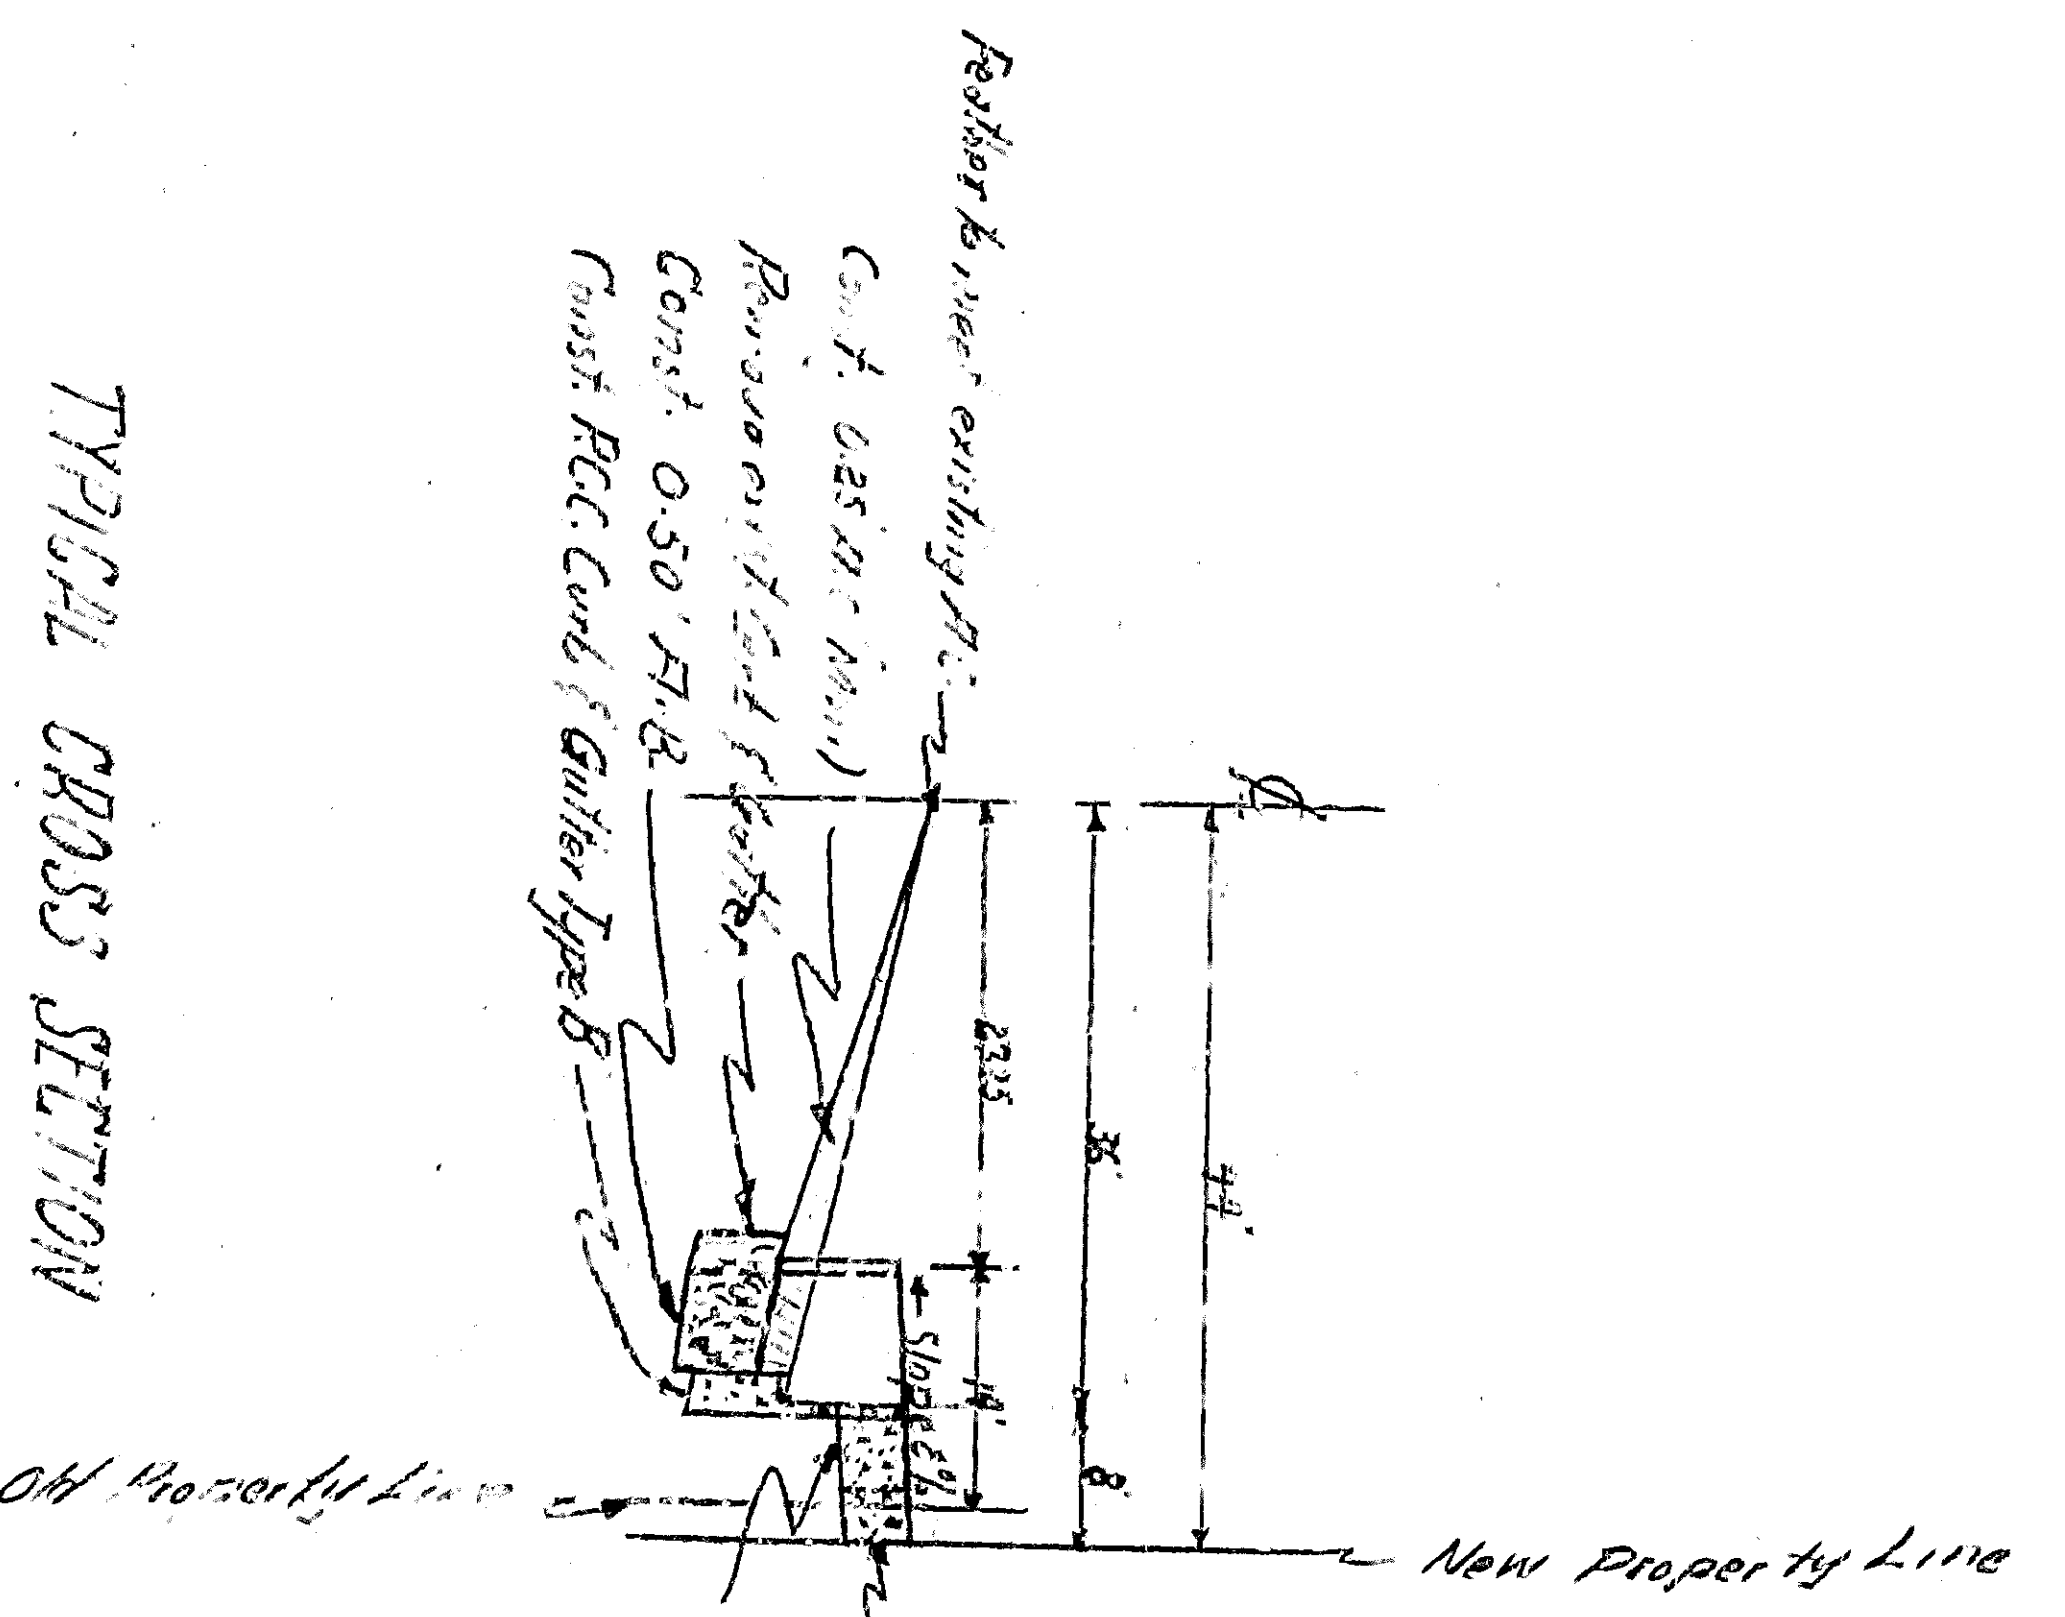 Feather to meet existing A.C.
Const. 0.25 A.C. Min.)
Remove exist. Curb & Gutter
Const. 0.50' A.B.
Const. P.C.C. Curb & Gutter Type B
23.25'
36'
44'
10'
8'
Slope 2%
Old Property Line
New Property Line
TYPICAL CROSS SECTION